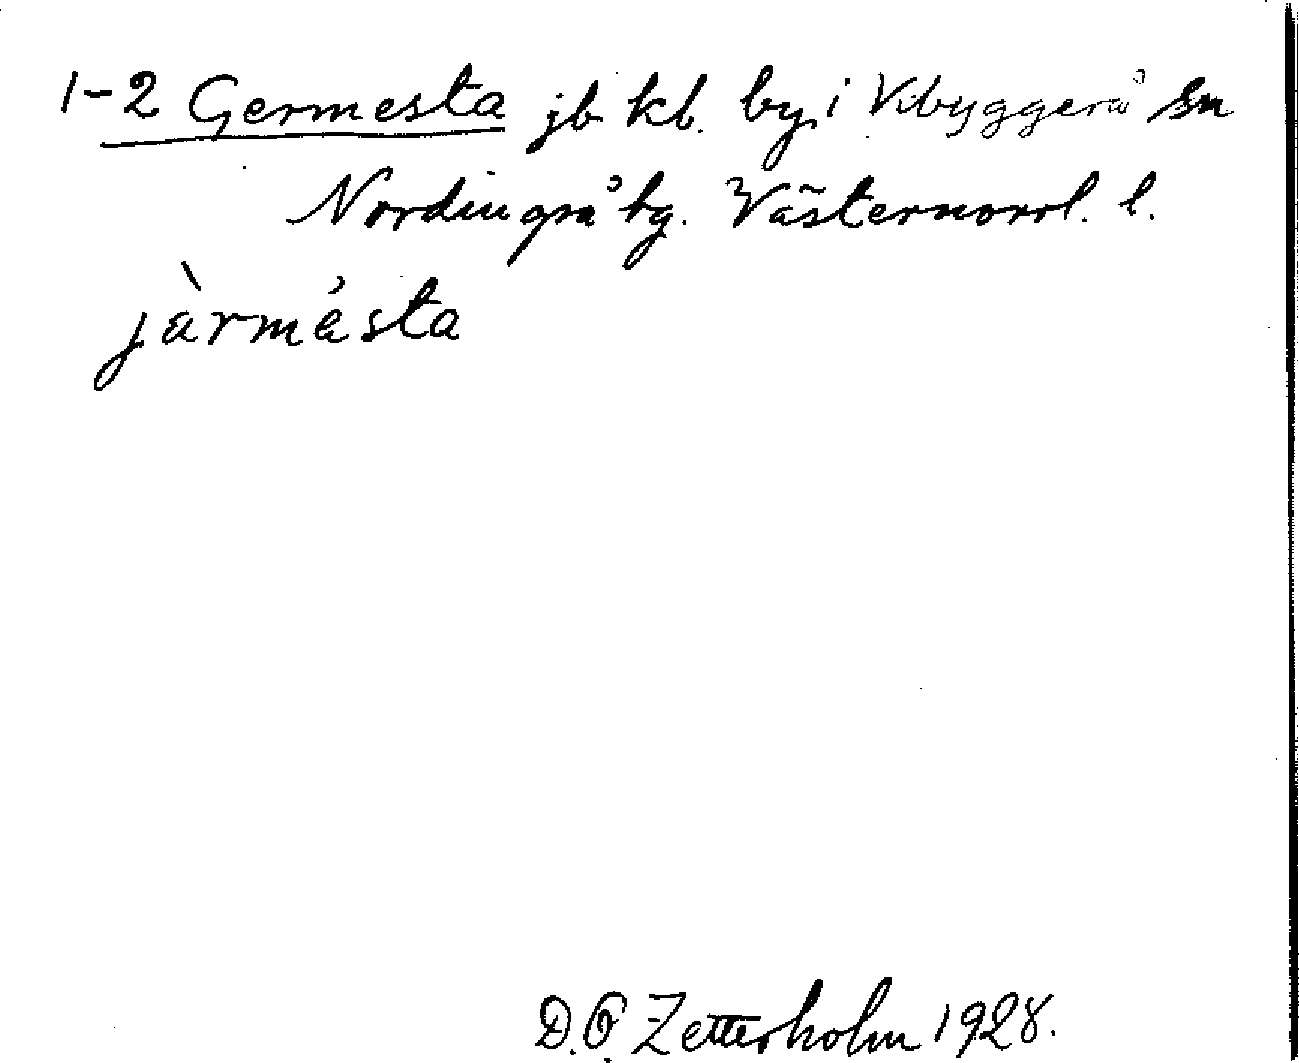 1-2 Germesta jb. kb. by i Vibyggerå sn
Nordingrå tg. Västernorrl. l.
jàrmésta
D. O. Zetterholm 1928.